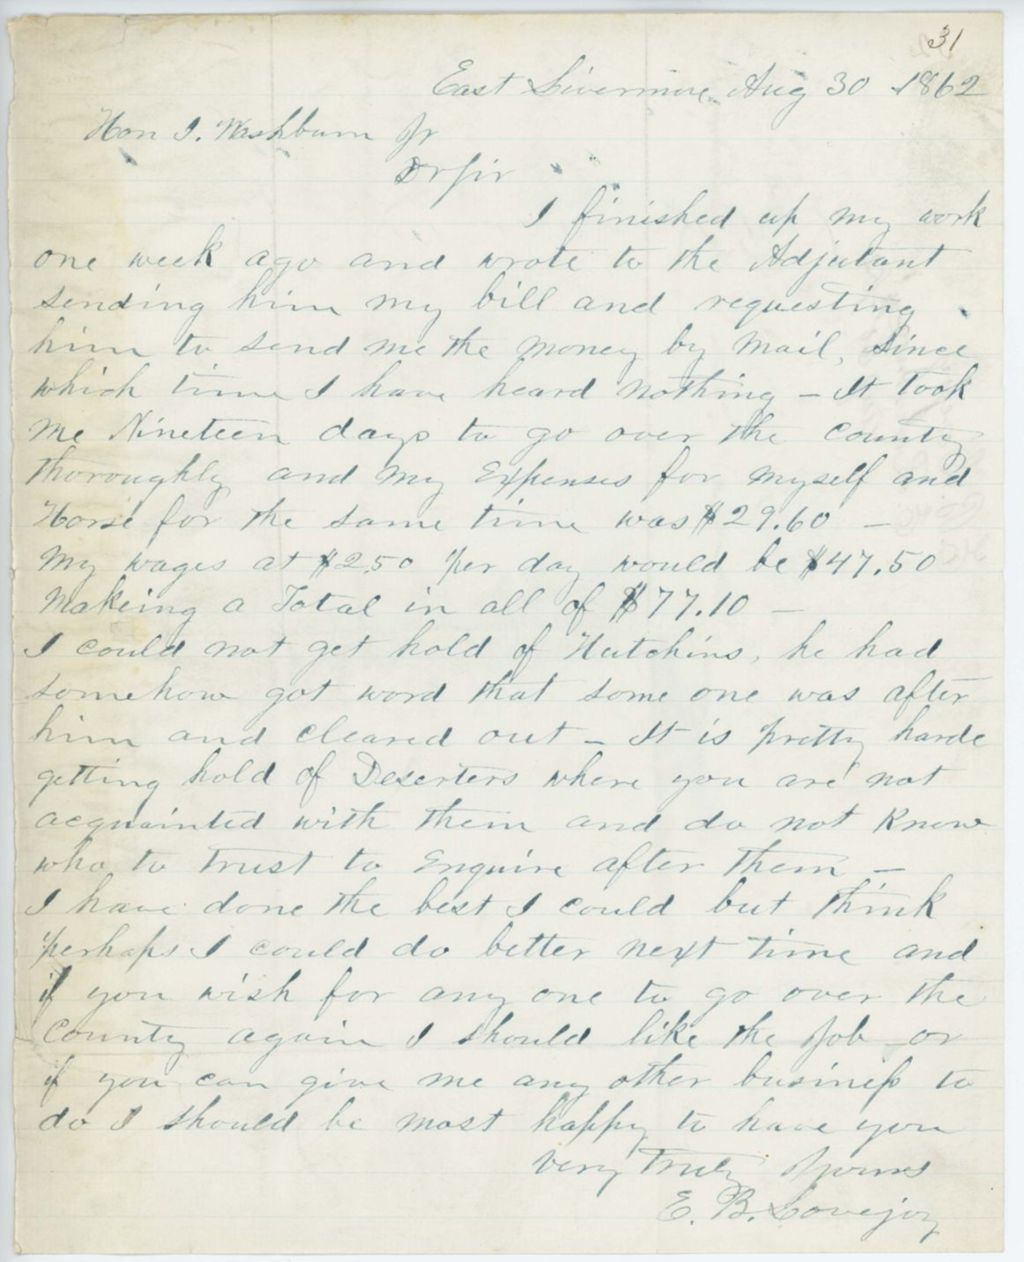 31
East Livermore Aug 30 1862
Hon I. Washburn Jr
Dr Sir
I finished up my work
one week ago and wrote to the Adjutant
sending him my bill and requesting
him to send me the money by mail, since
which time I have heard nothing – It took
me Nineteen days to go over the county
thoroughly and my Expenses for myself and
Horse for the same time was $29.60 –
My wages at $2.50 per day would be $47.50
Makeing a Total in all of $77.10 –
I could not get hold of Hutchins, he had
somehow got word that some one was after
him and cleared out – It is pretty harde
getting hold of Deserters where you are not
acquainted with them and do not Know
who to trust to Enquire after them –
I have done the best I could but think
perhaps I could do better next time and
if you wish for any one to go over the
County again I should like the Job or
if you can give me any other business to
do I should be most happy to have you
Very Truly Yours
E. B. Lovejoy